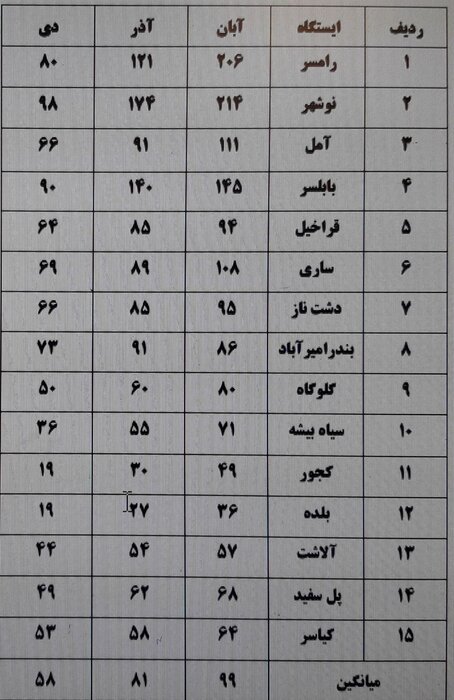 ردیف ایستگاه آبان آذر دی
۱ رامسر ۲۰۶ ۱۲۱ ۸۰
۲ نوشهر ۲۱۴ ۱۷۴ ۹۸
۳ آمل ۱۱۱ ۹۱ ۶۶
۴ بابلسر ۱۴۵ ۱۴۰ ۹۰
۵ قراخیل ۹۴ ۸۵ ۶۴
۶ ساری ۱۰۸ ۸۹ ۶۹
۷ دشت ناز ۹۵ ۸۵ ۶۶
۸ بندرامیرآباد ۸۶ ۹۱ ۷۳
۹ گلوگاه ۸۰ ۶۰ ۵۰
۱۰ سیاه بیشه ۷۱ ۵۵ ۳۶
۱۱ کجور ۴۹ ۳۰ ۱۹
۱۲ بلده ۳۶ ۲۷ ۱۹
۱۳ آلاشت ۵۷ ۵۴ ۴۴
۱۴ پل سفید ۶۸ ۶۲ ۴۹
۱۵ کیاسر ۶۴ ۵۸ ۵۳
میانگین ۹۹ ۸۱ ۵۸